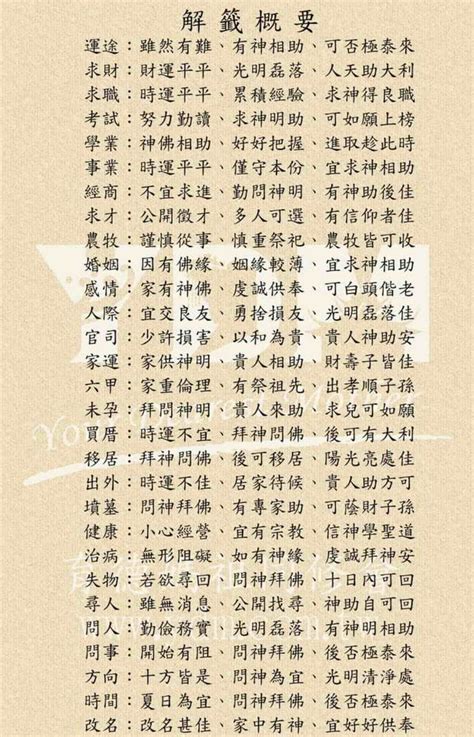 解籤概要
運途：雖然有難、有神相助、可否極泰來
求財：財運平平、光明磊落、人天助大利
求職：時運平平、累積經驗、求神得良職
考試：努力勤讀、求神明助、可如願上榜
學業：神佛相助、好好把握、進取趁此時
事業：時運平平、僅守本份、宜求神相助
經商：不宜求進、勤問神明、有神助後佳
求才：公開徵才、多人可選、有信仰者佳
農牧：謹慎從事、慎重祭祀、農牧皆可收
婚姻：因有佛緣、姻緣較薄、宜求神相助
感情：家有神佛、虔誠供奉、可白頭偕老
人際：宜交良友、勇捨損友、光明磊落佳
官司：少許損害、以和為貴、貴人神助安
家運：家供神明、貴人相助、財壽子皆佳
六甲：家重倫理、有祭祖先、出孝順子孫
未孕：拜問神明、貴人來助、求兒可如願
買厝：時運不宜、拜神問佛、後可有大利
移居：拜神問佛、後可移居、陽光亮處佳
出外：時運不佳、居家待候、貴人助方可
墳墓：問神拜佛、有專家助、可蔭財子孫
健康：小心經營、宜有宗教、信神學聖道
治病：無形阻礙、如有神緣、虔誠拜神安
失物：若欲尋回、問神拜佛、十日內可回
尋人：雖無消息、公開找尋、神助自可回
問人：勤儉務實、光明磊落、有神明相助
問事：開始有阻、問神拜佛、後否極泰來
方向：十方皆是、問神為宜、光明清淨處
時間：夏日為宜、問神拜佛、後否極泰來
改名：改名甚佳、家中有神、宜好好供奉